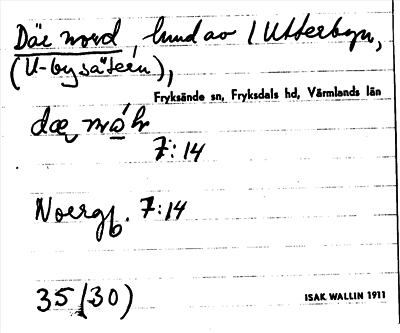 Där nord, lund av / Utterbyn,
(U-bysätern),
Fryksände sn, Fryksdals hd, Värmlands län
dæ, no̲h
7:14
Noergb. 7:14
35 (30)
ISAK WALLIN 1911